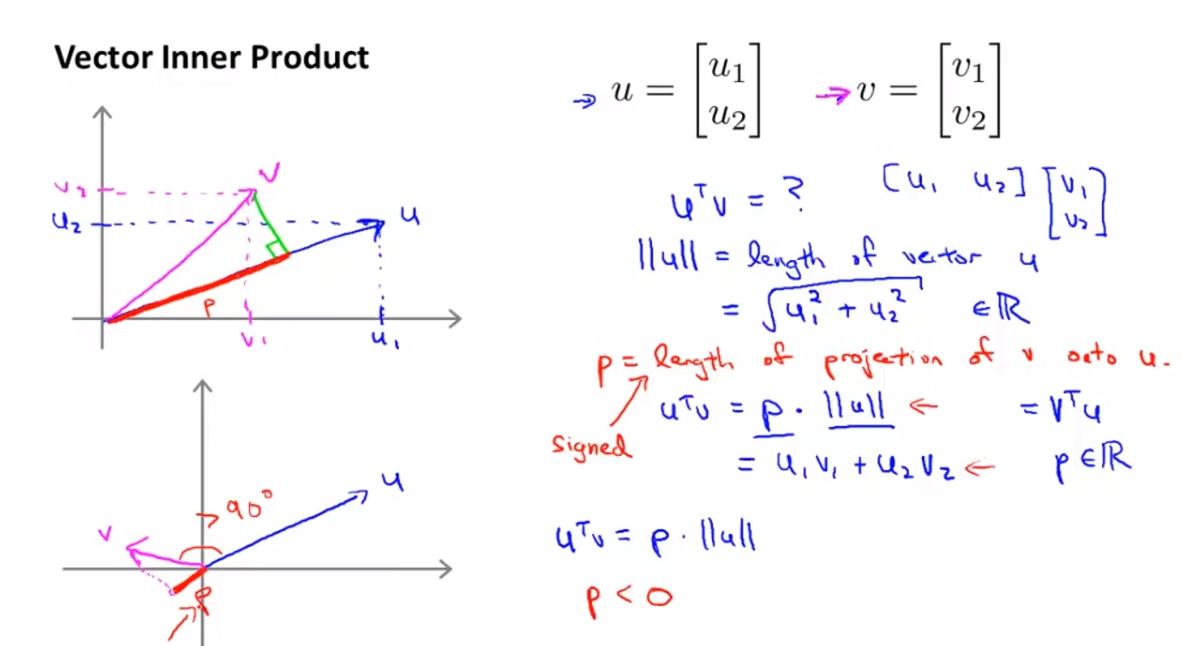 Vector Inner Product
→ u = [u1 u2] → v = [v1 v2]
uᵀv = ? [u₁ u₂] [v₁ v₂]
||u|| = length of vector u
= √u₁² + u₂² ∈ ℝ
p = length of projection of v onto u.
signed
uᵀv = p · ||u|| ← = vᵀu
= u₁v₁ + u₂v₂ ← p ∈ ℝ
uᵀv = p · ||u||
p < 0
v
v₂
u₂
u
p
v₁
u₁
u
> 90°
v
p